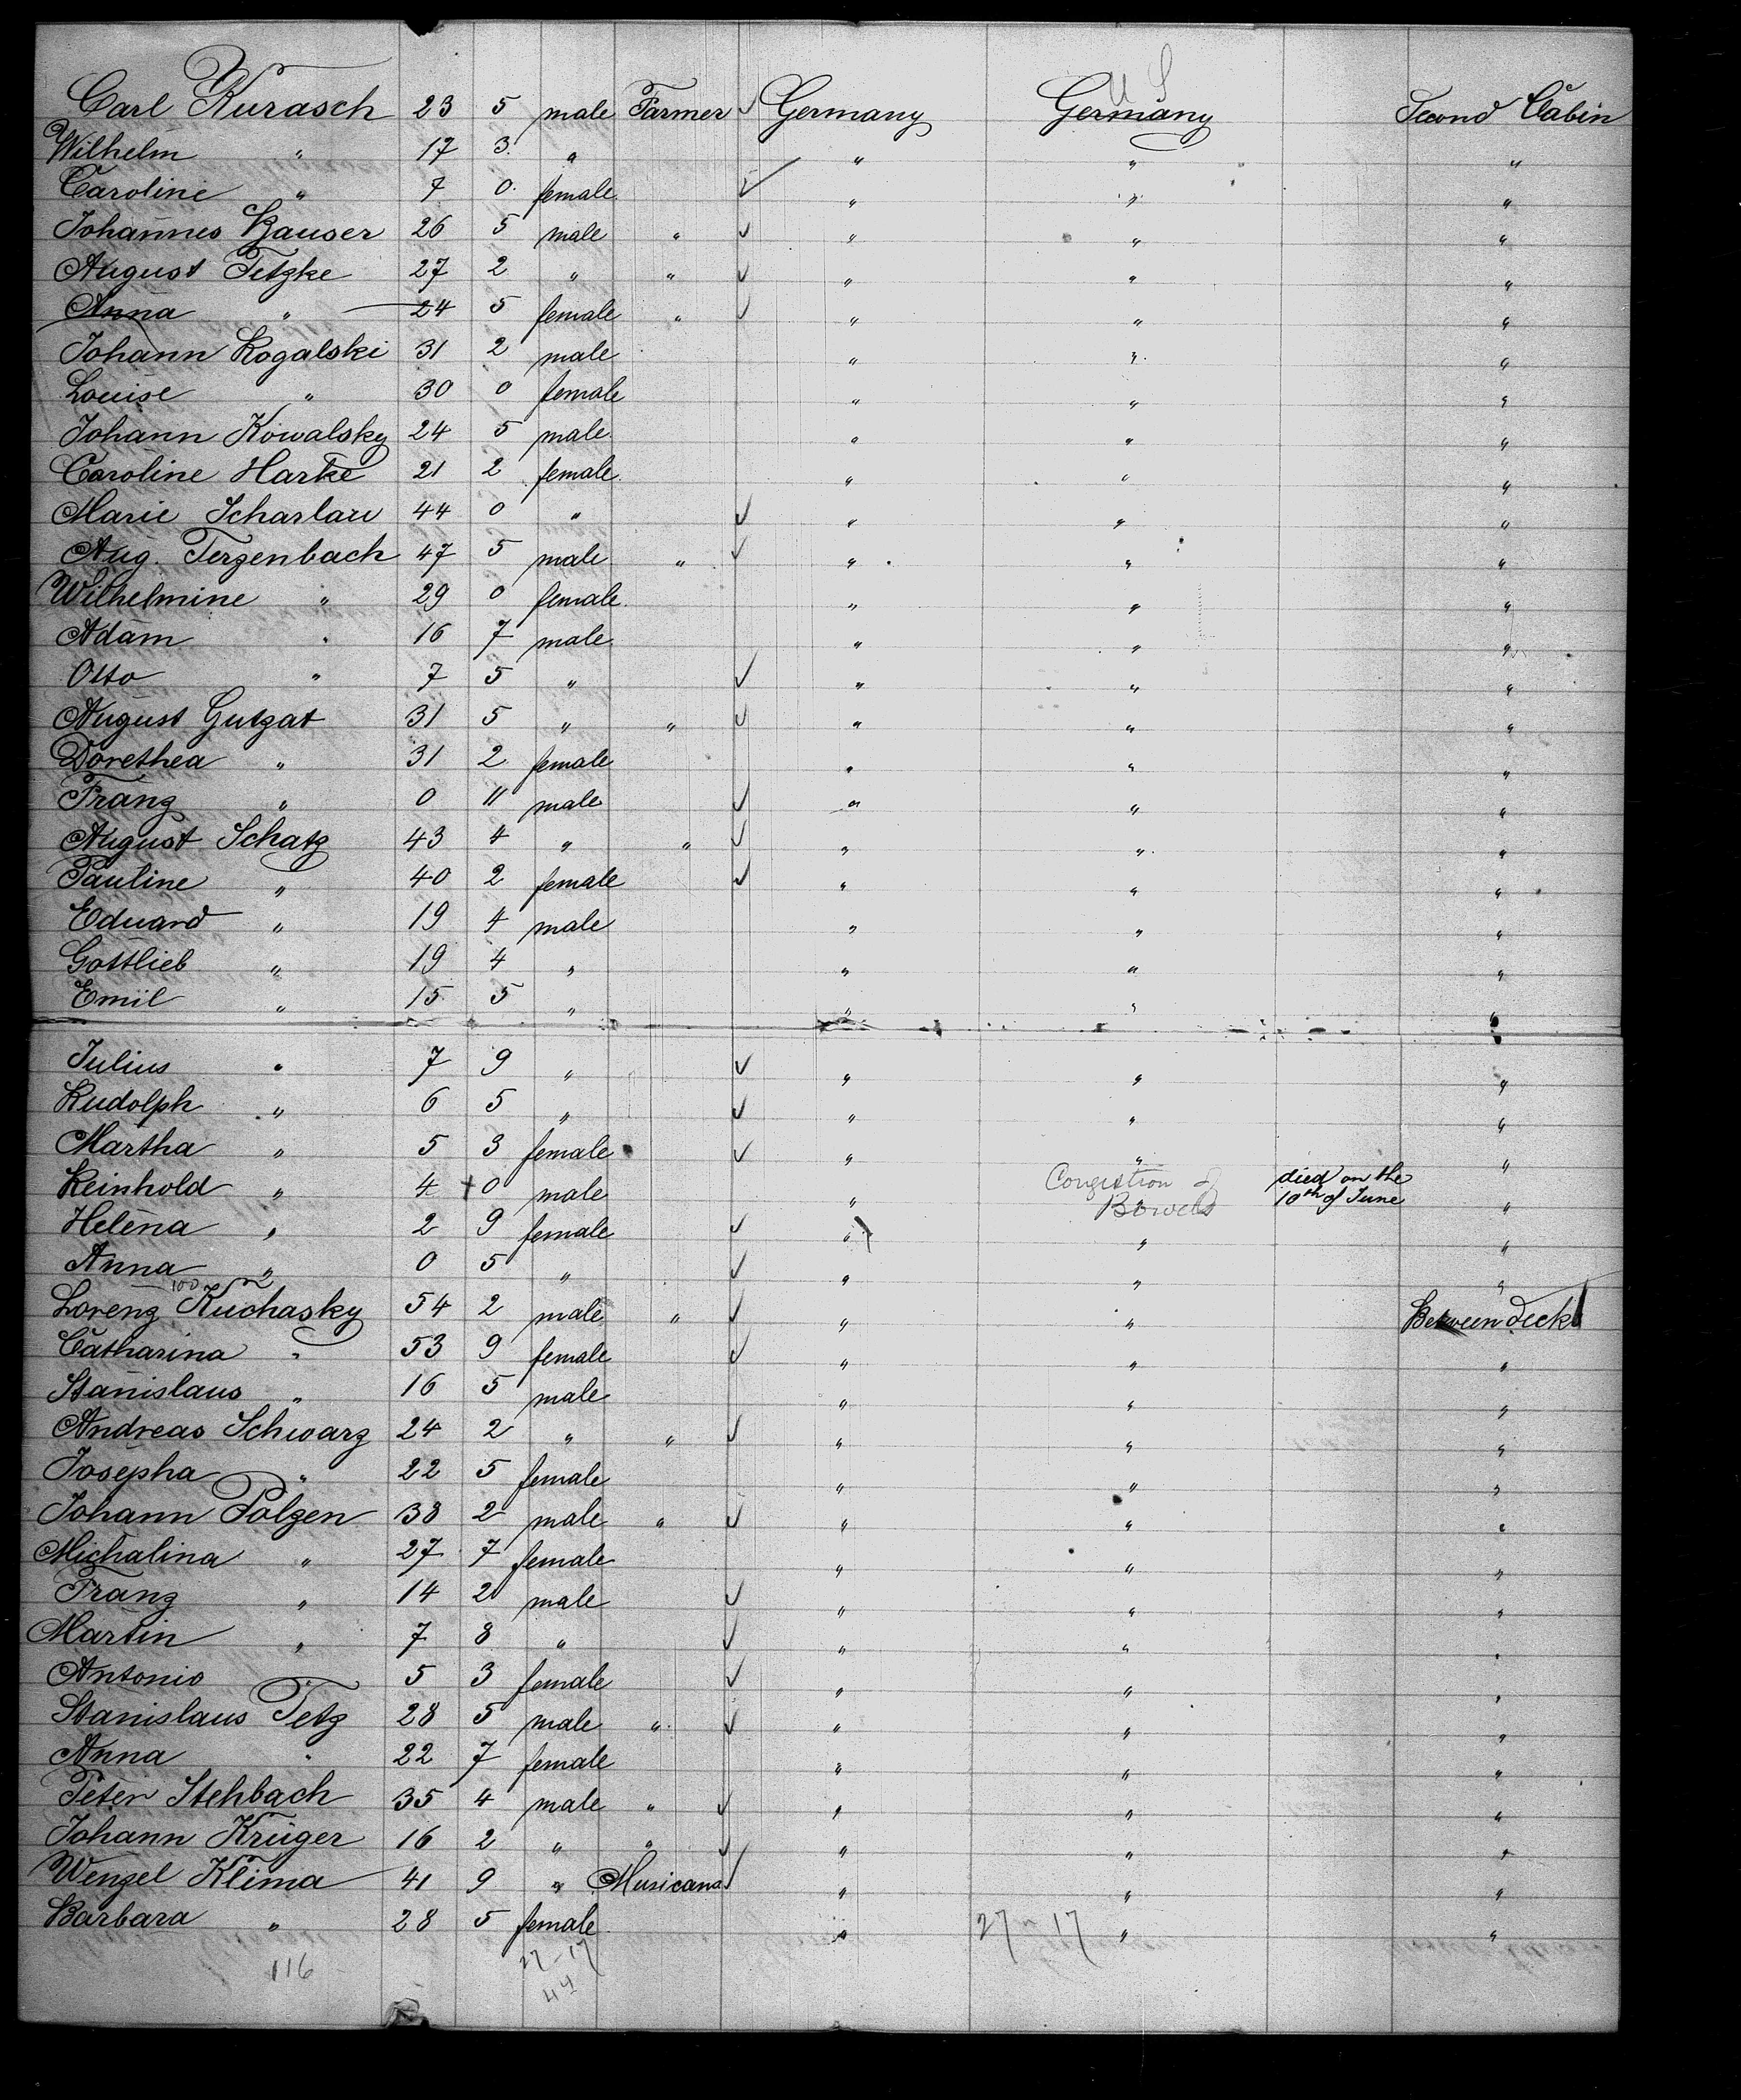 U S
Carl Kurasch 23 5 male Farmer ✓ Germany Germany Second Cabin
Wilhelm " 17 3 " " " "
Caroline " 7 0 female ✓ " " "
Johannes Kauser 26 5 male " ✓ " " "
August Tetzke 27 2 " " ✓ " " "
Anna " 24 5 female " ✓ " " "
Johann Rogalski 31 2 male " " "
Louise " 30 0 female " " "
Johann Kowalsky 24 5 male " " "
Caroline Harke 21 2 female " " "
Marie Scharlau 44 0 " ✓ " " "
Aug. Terzenbach 47 5 male " ✓ " " "
Wilhelmine " 29 0 female " " "
Adam " 16 7 male " " "
Otto " 7 5 " ✓ " " "
August Gutzat 31 5 " " ✓ " " "
Dorethea " 31 2 female " " "
Franz " 0 11 male ✓ " " "
August Schatz 43 4 " " ✓ " " "
Pauline " 40 2 female ✓ " " "
Eduard " 19 4 male " " "
Gottlieb " 19 4 " " " "
Emil " 15 5 " " " "
Julius " 7 9 " ✓ " " "
Rudolph " 6 5 " ✓ " " "
Martha " 5 3 female ✓ " " "
Reinhold " 4 † 0 male " Congestion of Bowels died on the 10th of June "
Helena " 2 9 female ✓ " " "
Anna " 0 5 " ✓ " " "
100
Lorenz Kuchasky 54 2 male " ✓ " " Between deck
Catharina " 53 9 female ✓ " " "
Stanislaus " 16 5 male " " "
Andreas Schwarz 24 2 " " ✓ " " "
Josepha " 22 5 female " " "
Johann Polzen 38 2 male " ✓ " " "
Michalina " 27 7 female " " "
Franz " 14 2 male ✓ " " "
Martin " 7 8 " ✓ " " "
Antonio 5 3 female ✓ " " "
Stanislaus Tetz 28 5 male " ✓ " " "
Anna " 22 7 female " " "
Peter Stehbach 35 4 male " ✓ " " "
Johann Krüger 16 2 " " ✓ " " "
Wenzel Klima 41 9 " Musicans ✓ " " "
Barbara " 28 5 female " " "
27 - 17
116 27 - 17
44